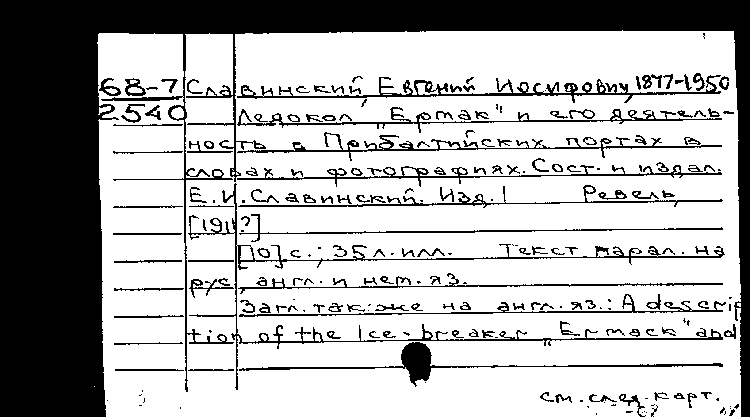 68-7 Славинский, Евгений Иосифович, 1877-1950
2540 Ледокол „Ермак" и его деятель-
ность в Прибалтийских портах в
словах и фотографиях. Сост. и издал.
Е.И. Славинский. Изд. 1 Ревель,
[191?]
[10] с.; 35 л. илл. Текст парал. на
рус., англ. и нем. яз.
Загл. также на англ. яз.: A descrip
tion of the Ice-breaker „Ermack" and
см. след. карт.